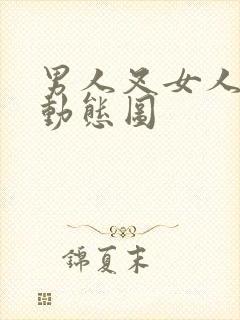 男人叉女人
動態图
錦夏末